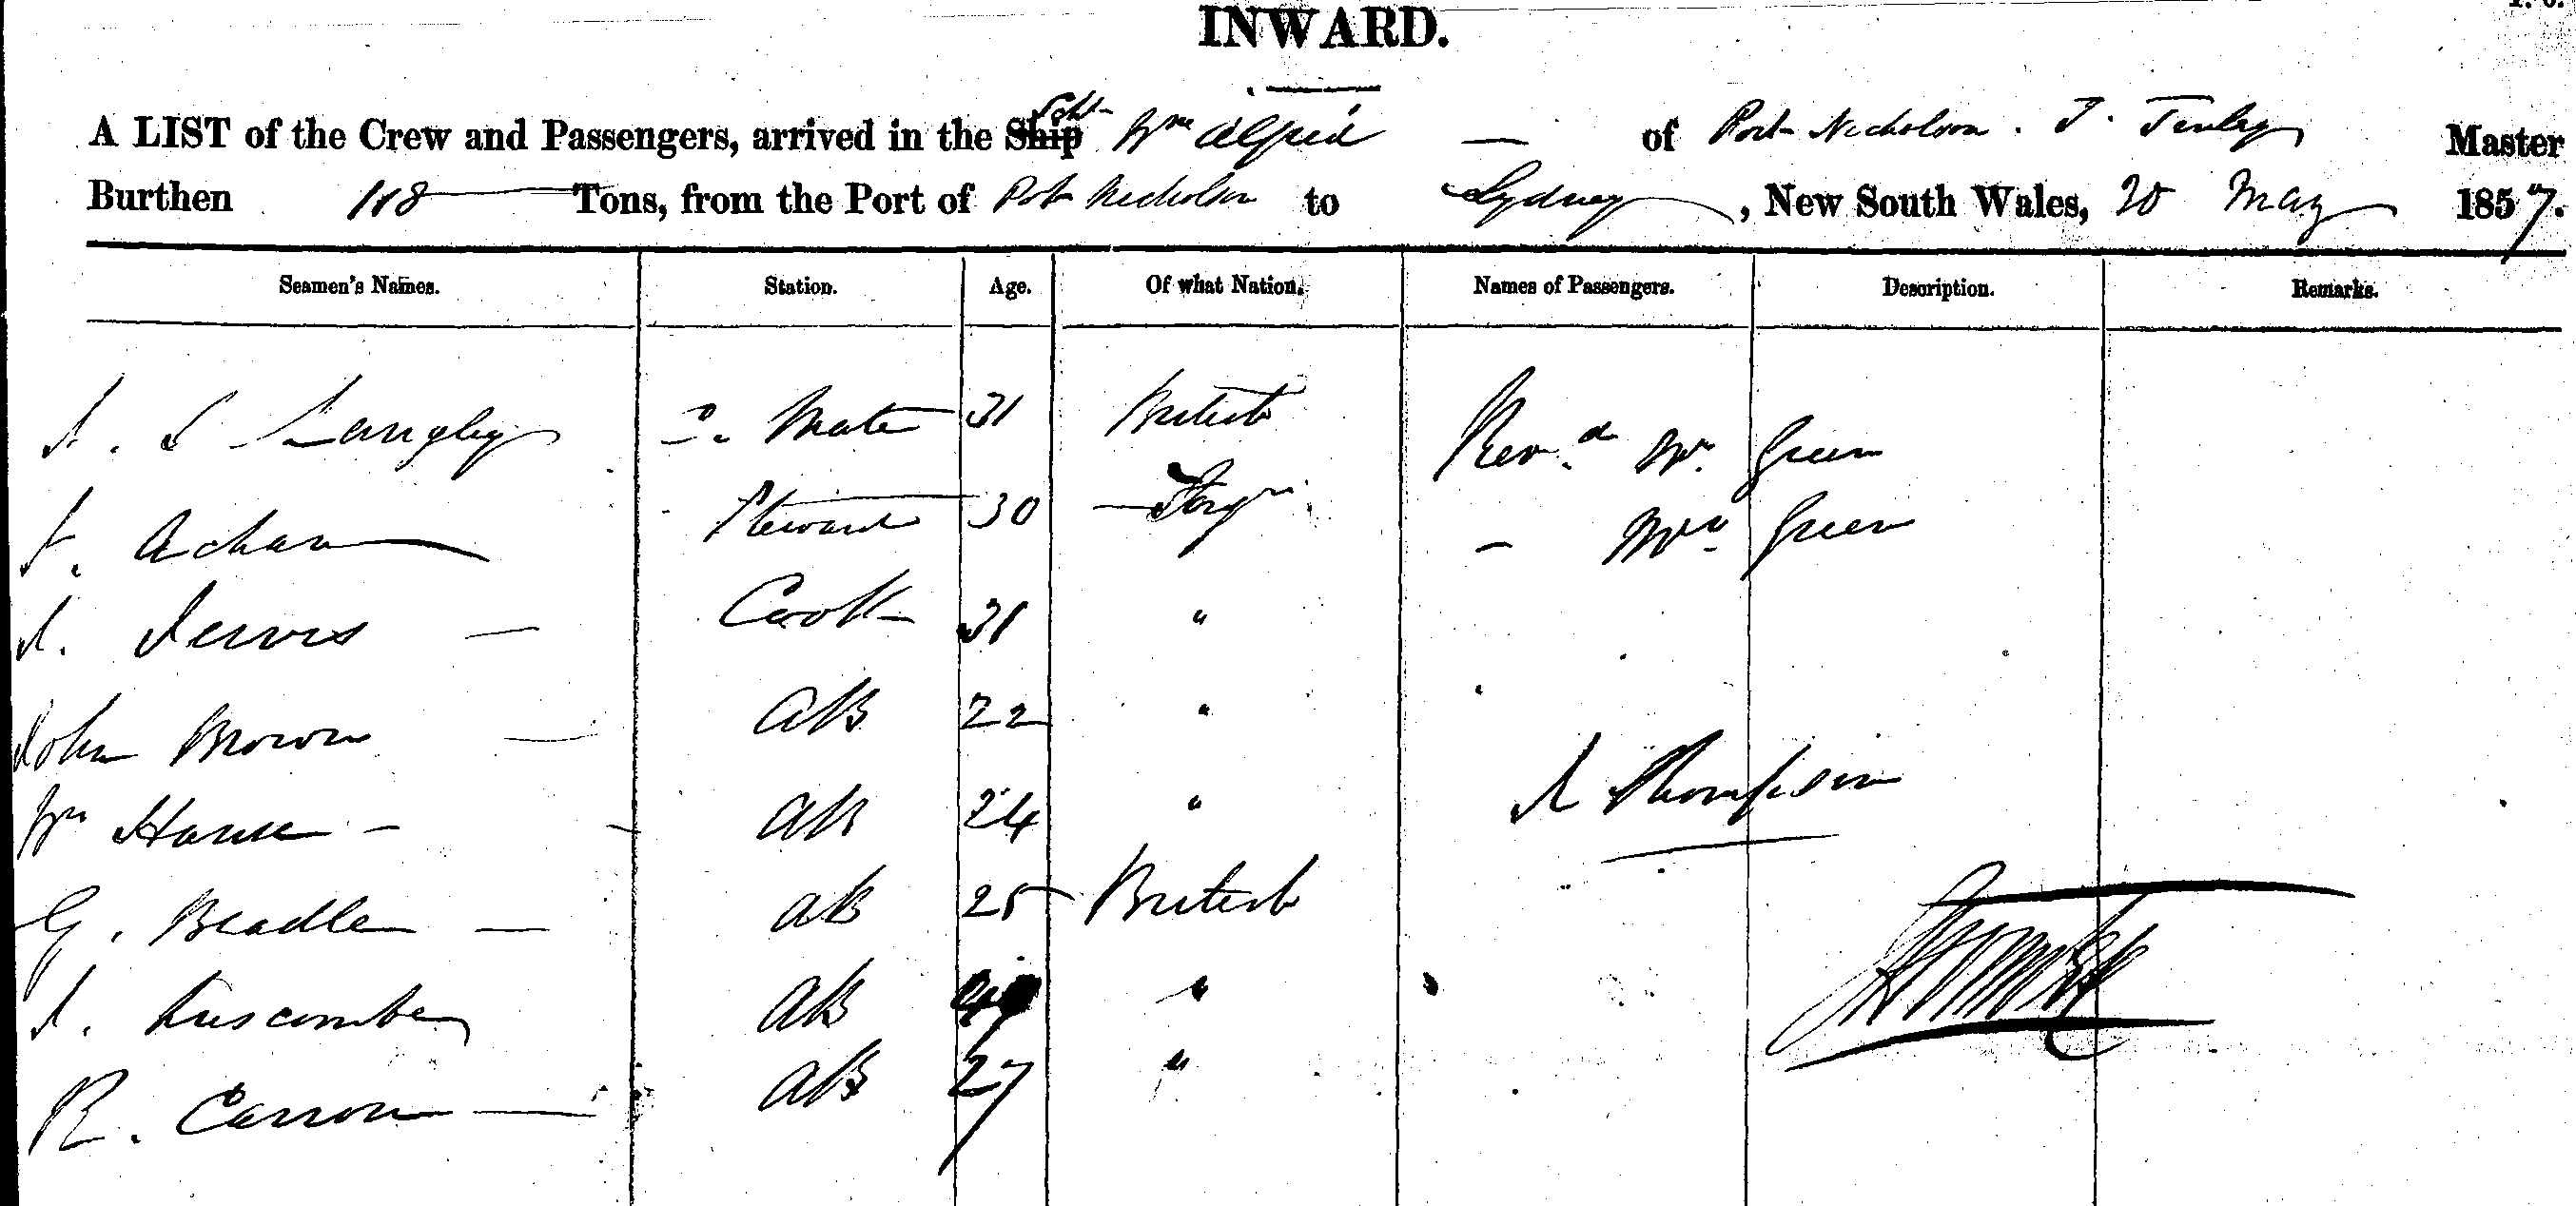 INWARD.
A LIST of the Crew and Passengers, arrived in the Ship Scht Wm Alfred — of Port Nicholson. J. Tinley Master
Burthen 118 Tons, from the Port of Port Nicholson to Sydney, New South Wales, 20 May 1857.
Seamen's Names. Station. Age. Of what Nation. Names of Passengers. Description. Remarks.
J. S Langley C. Mate 31 British Revd. Mr. Green
F. Acham Steward 30 Forgn. - Mrs. Green
J. Jervis — Cook 31 "
John Brown — AB 22 "
Wm — AB 24 " J Thompson
G. Beadle — AB 25 British
J. Luscombe AB "
R. Carron — AB 27 "